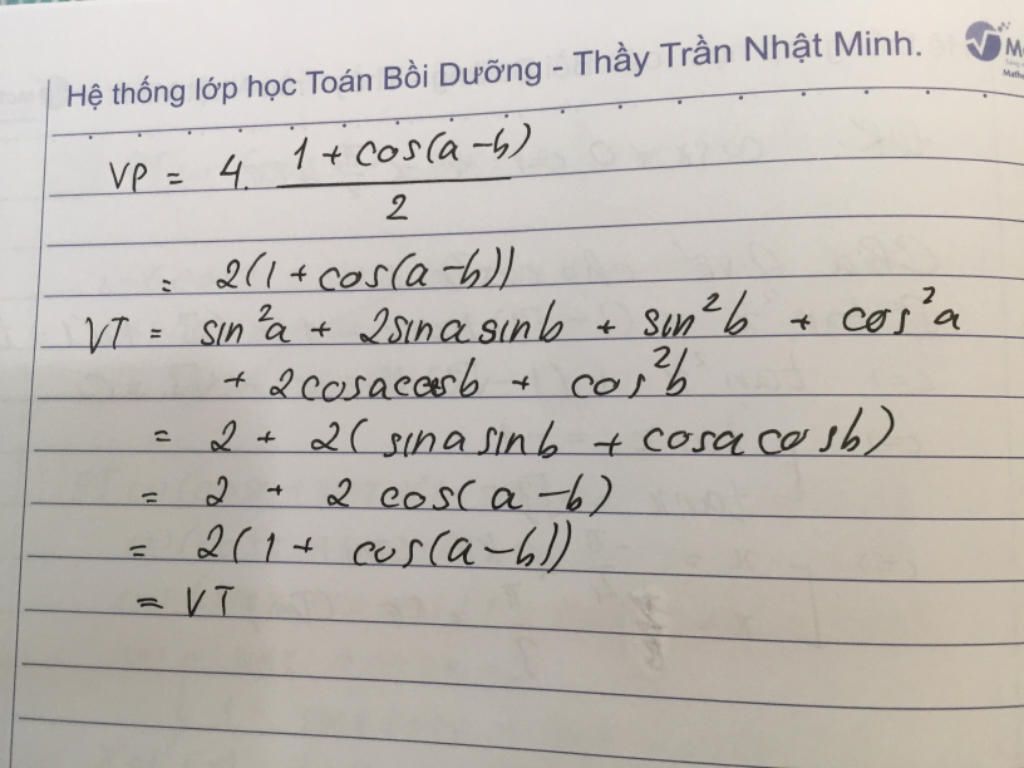 Hệ thống lớp học Toán Bồi Dưỡng - Thầy Trần Nhật Minh.
VP = 4. \frac{1 + cos(a-b)}{2}
= 2(1 + cos(a-b))
VT = sin²a + 2sina sinb + sin²b + cos²a
+ 2cosacosb + cos²b
= 2 + 2( sina sinb + cosa cosb)
= 2 + 2 cos(a-b)
= 2(1 + cos(a-b))
= VT